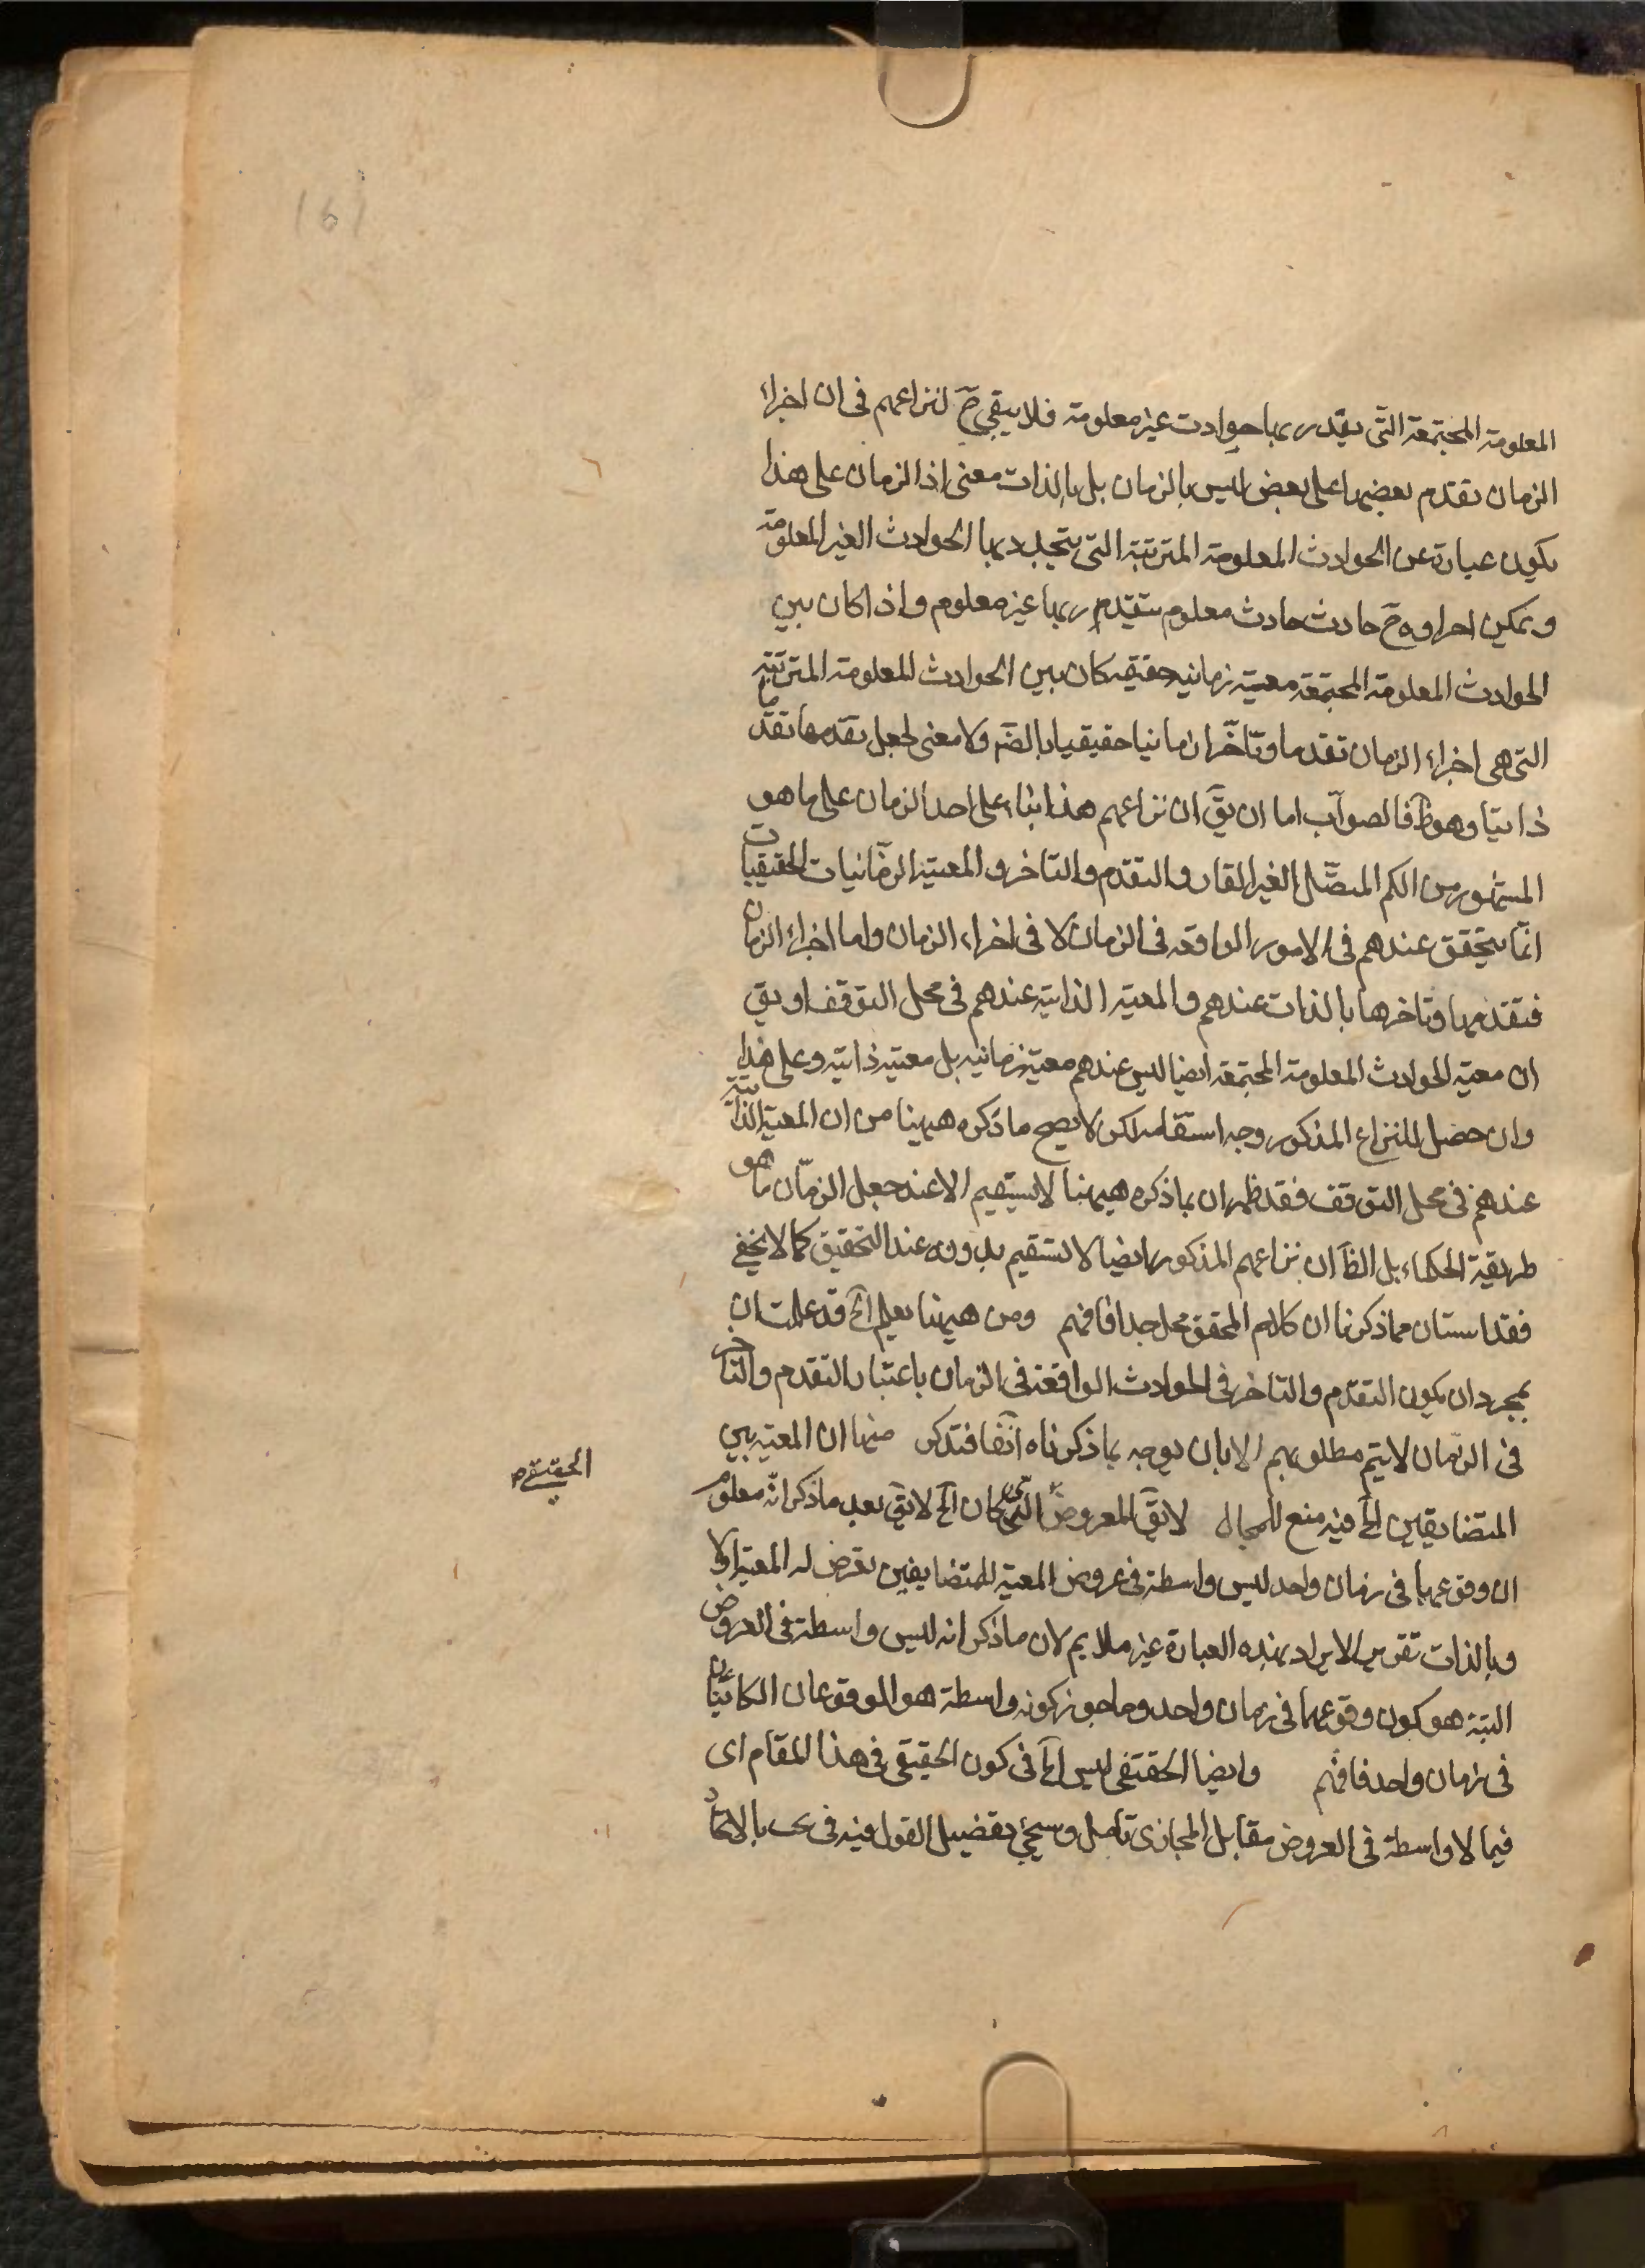 161
المعلومة المجتمعة التى يقدر بها حوادث غير معلومة فلا يبقى ح لنزاعهم فى ان اجزاء
الزمان تقدم بعضها على بعض ليس بالزمان بل بالذات معنى اذ الزمان على هذا
يكون عبارة عن الحوادث المعلومة المترتبة التى يتجدد بها الحوادث الغير المعلومة
و يمكن ح حادث حادث معلوم بها غير معلوم و اذا كان بين
الحوادث المعلومة المجتمعة معية زمانية حقيقة كان بين الحوادث المعلومة المترتبة
التى هى اجزاء الزمان تقدما و تاخرا زمانيا حقيقيا بالضرورة ولا معنى لجعل تقدمها تقدما
ذاتيا و هو ظ فالصواب اما ان يق ان نزاعهم هذا بناء على اخذ الزمان على ما هو
المشهور من الكم المتصل الغير القار و التقدم و التاخر و المعية الزمانيات الحقيقيات
انما يتحقق عندهم فى الامور الواقعة فى الزمان لا فى اجزاء الزمان و اما اجزاء الزمان
فتقدمها و تاخرها بالذات عندهم و المعية الذاتية عندهم فى محل التوقف او يق
ان معية الحوادث المعلومة المجتمعة ايضا ليس عندهم معية زمانية بل معية ذاتية و على هذا
و ان حصل للنزاع المذكور وجه استقامة لكن لا يصح ما ذكره ههنا من ان المعية الذاتية
عندهم فى محل التوقف فقد ظهر ان ما ذكره ههنا لا يستقيم الا عند جعل الزمان ما هو
طريقة الحكماء بل الظ ان نزاعهم المذكور ايضا لا يستقيم بدونه عند التحقيق كما لا يخفى
فقد استبان مما ذكرنا ان كلام المحقق مخل جدا فافهم ومن ههنا يعلم الخ قد علمت ان
بمجرد ان يكون التقدم و التاخر فى الحوادث الواقعة فى الزمان باعتبار التقدم و التاخر
فى الزمان لا يتم مطلوبهم الا بان يوجه بما ذكرناه آنفا فتذكر منها ان المعية بين
المتضايفين الخ فيه منع للمجال لا يق المعروض الحقيقى كان الخ لا يق بعد ما ذكر انه معلوم
الحقيقى
ان وقوعهما فى زمان واحد ليس واسطة فى عروض المعية للمتضايفين يعرض له المعية اولا
و بالذات تقرير الايراد بهذه العبارة غير ملايم لان ما ذكر انه ليس واسطة فى العروض
البتة هو كون وقوعهما فى زمان واحد و ما جوز كونه واسطة هو الوقوعان الكائنان
فى زمان واحد فافهم و ايضا الحقيقى ليس الخ فى كون الحقيقى فى هذا المقام اى
فيما لا واسطة فى العروض مقابل المجازى تامل و سيجئ تفصيل القول فيه فى بالاتحاد